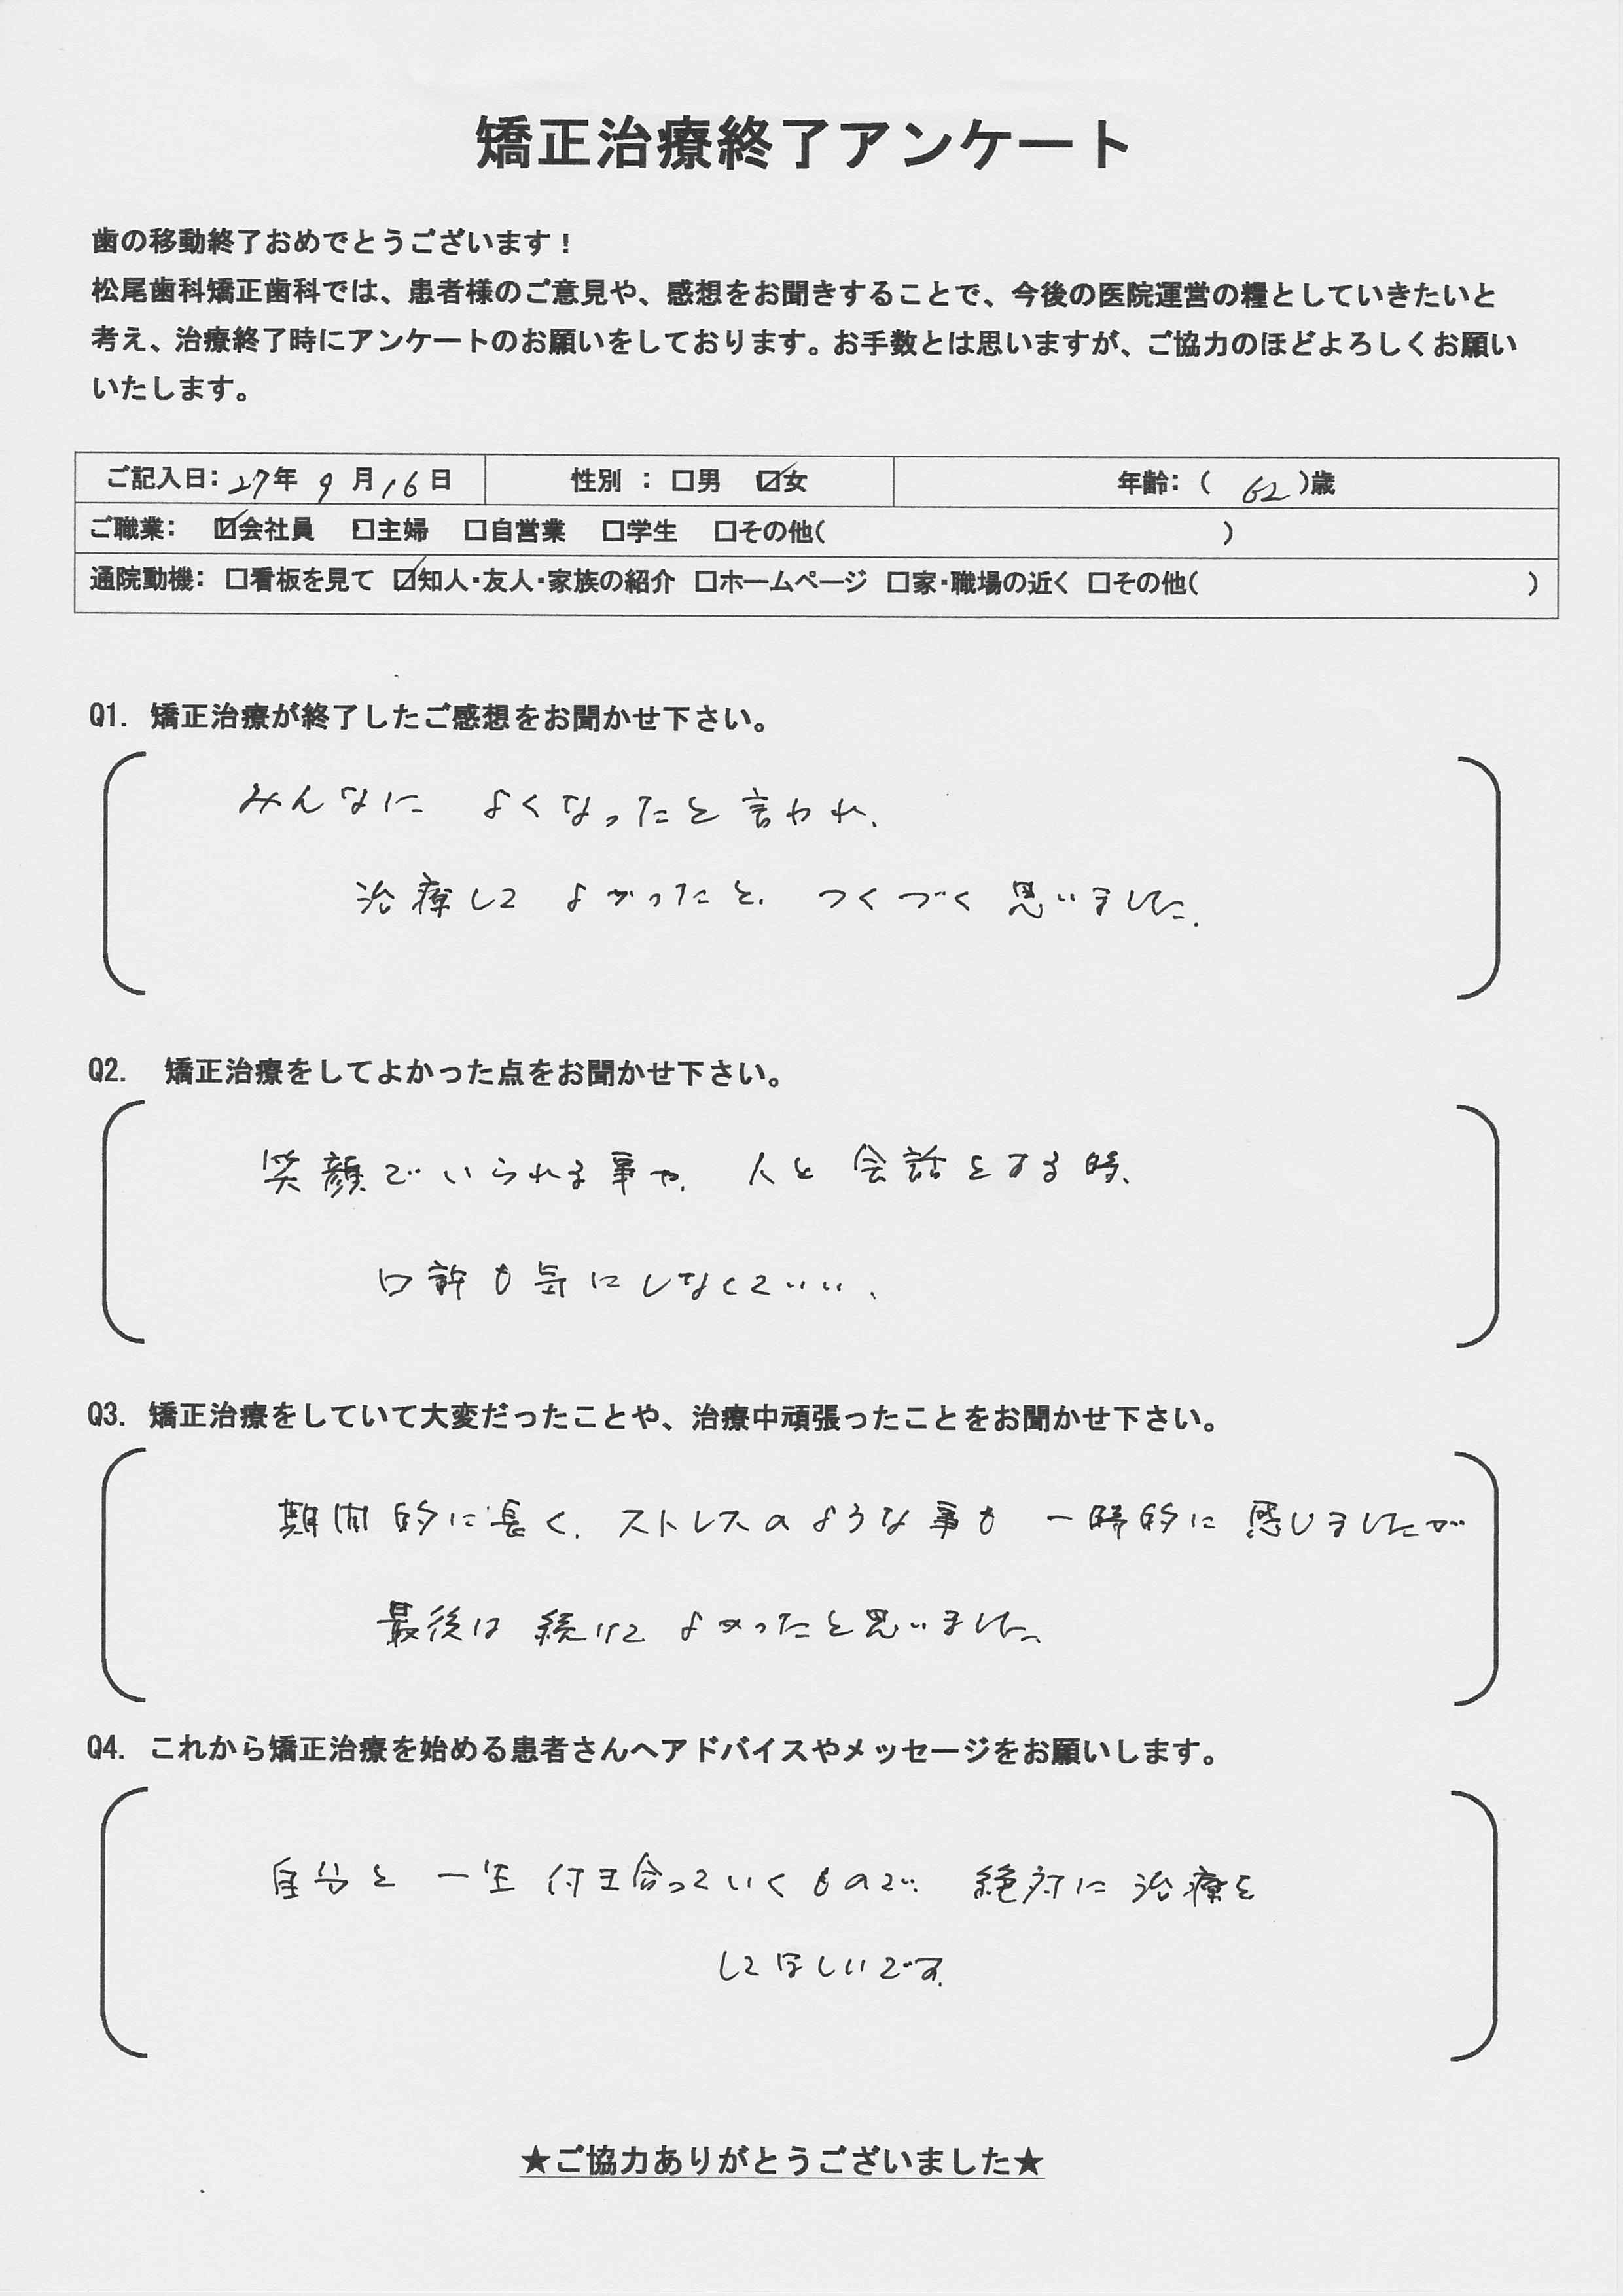 矯正治療終了アンケート
歯の移動終了おめでとうございます！
松尾歯科矯正歯科では、患者様のご意見や、感想をお聞きすることで、今後の医院運営の糧としていきたいと
考え、治療終了時にアンケートのお願いをしております。お手数とは思いますが、ご協力のほどよろしくお願い
いたします。
ご記入日：27年 9月16日 性別 ： □男 ☑女 年齢：（ 62 ）歳
ご職業： ☑会社員 □主婦 □自営業 □学生 □その他（ ）
通院動機： □看板を見て ☑知人・友人・家族の紹介 □ホームページ □家・職場の近く □その他（ ）
Q1. 矯正治療が終了したご感想をお聞かせ下さい。
みんなに よくなったと言われ、
治療して よかったと、つくづく 思いました。
Q2. 矯正治療をしてよかった点をお聞かせ下さい。
笑顔でいられる事や、人と 会話をする時、
口 も気にしなくていい、
Q3. 矯正治療をしていて大変だったことや、治療中頑張ったことをお聞かせ下さい。
期間的に長く、ストレスのような事も 一時的に 感じましたが
最後は 続けて よかったと思いました。
Q4. これから矯正治療を始める患者さんへアドバイスやメッセージをお願いします。
自分と 一生 付き合っていくもので、絶対に 治療を
してほしいです。
★ご協力ありがとうございました★